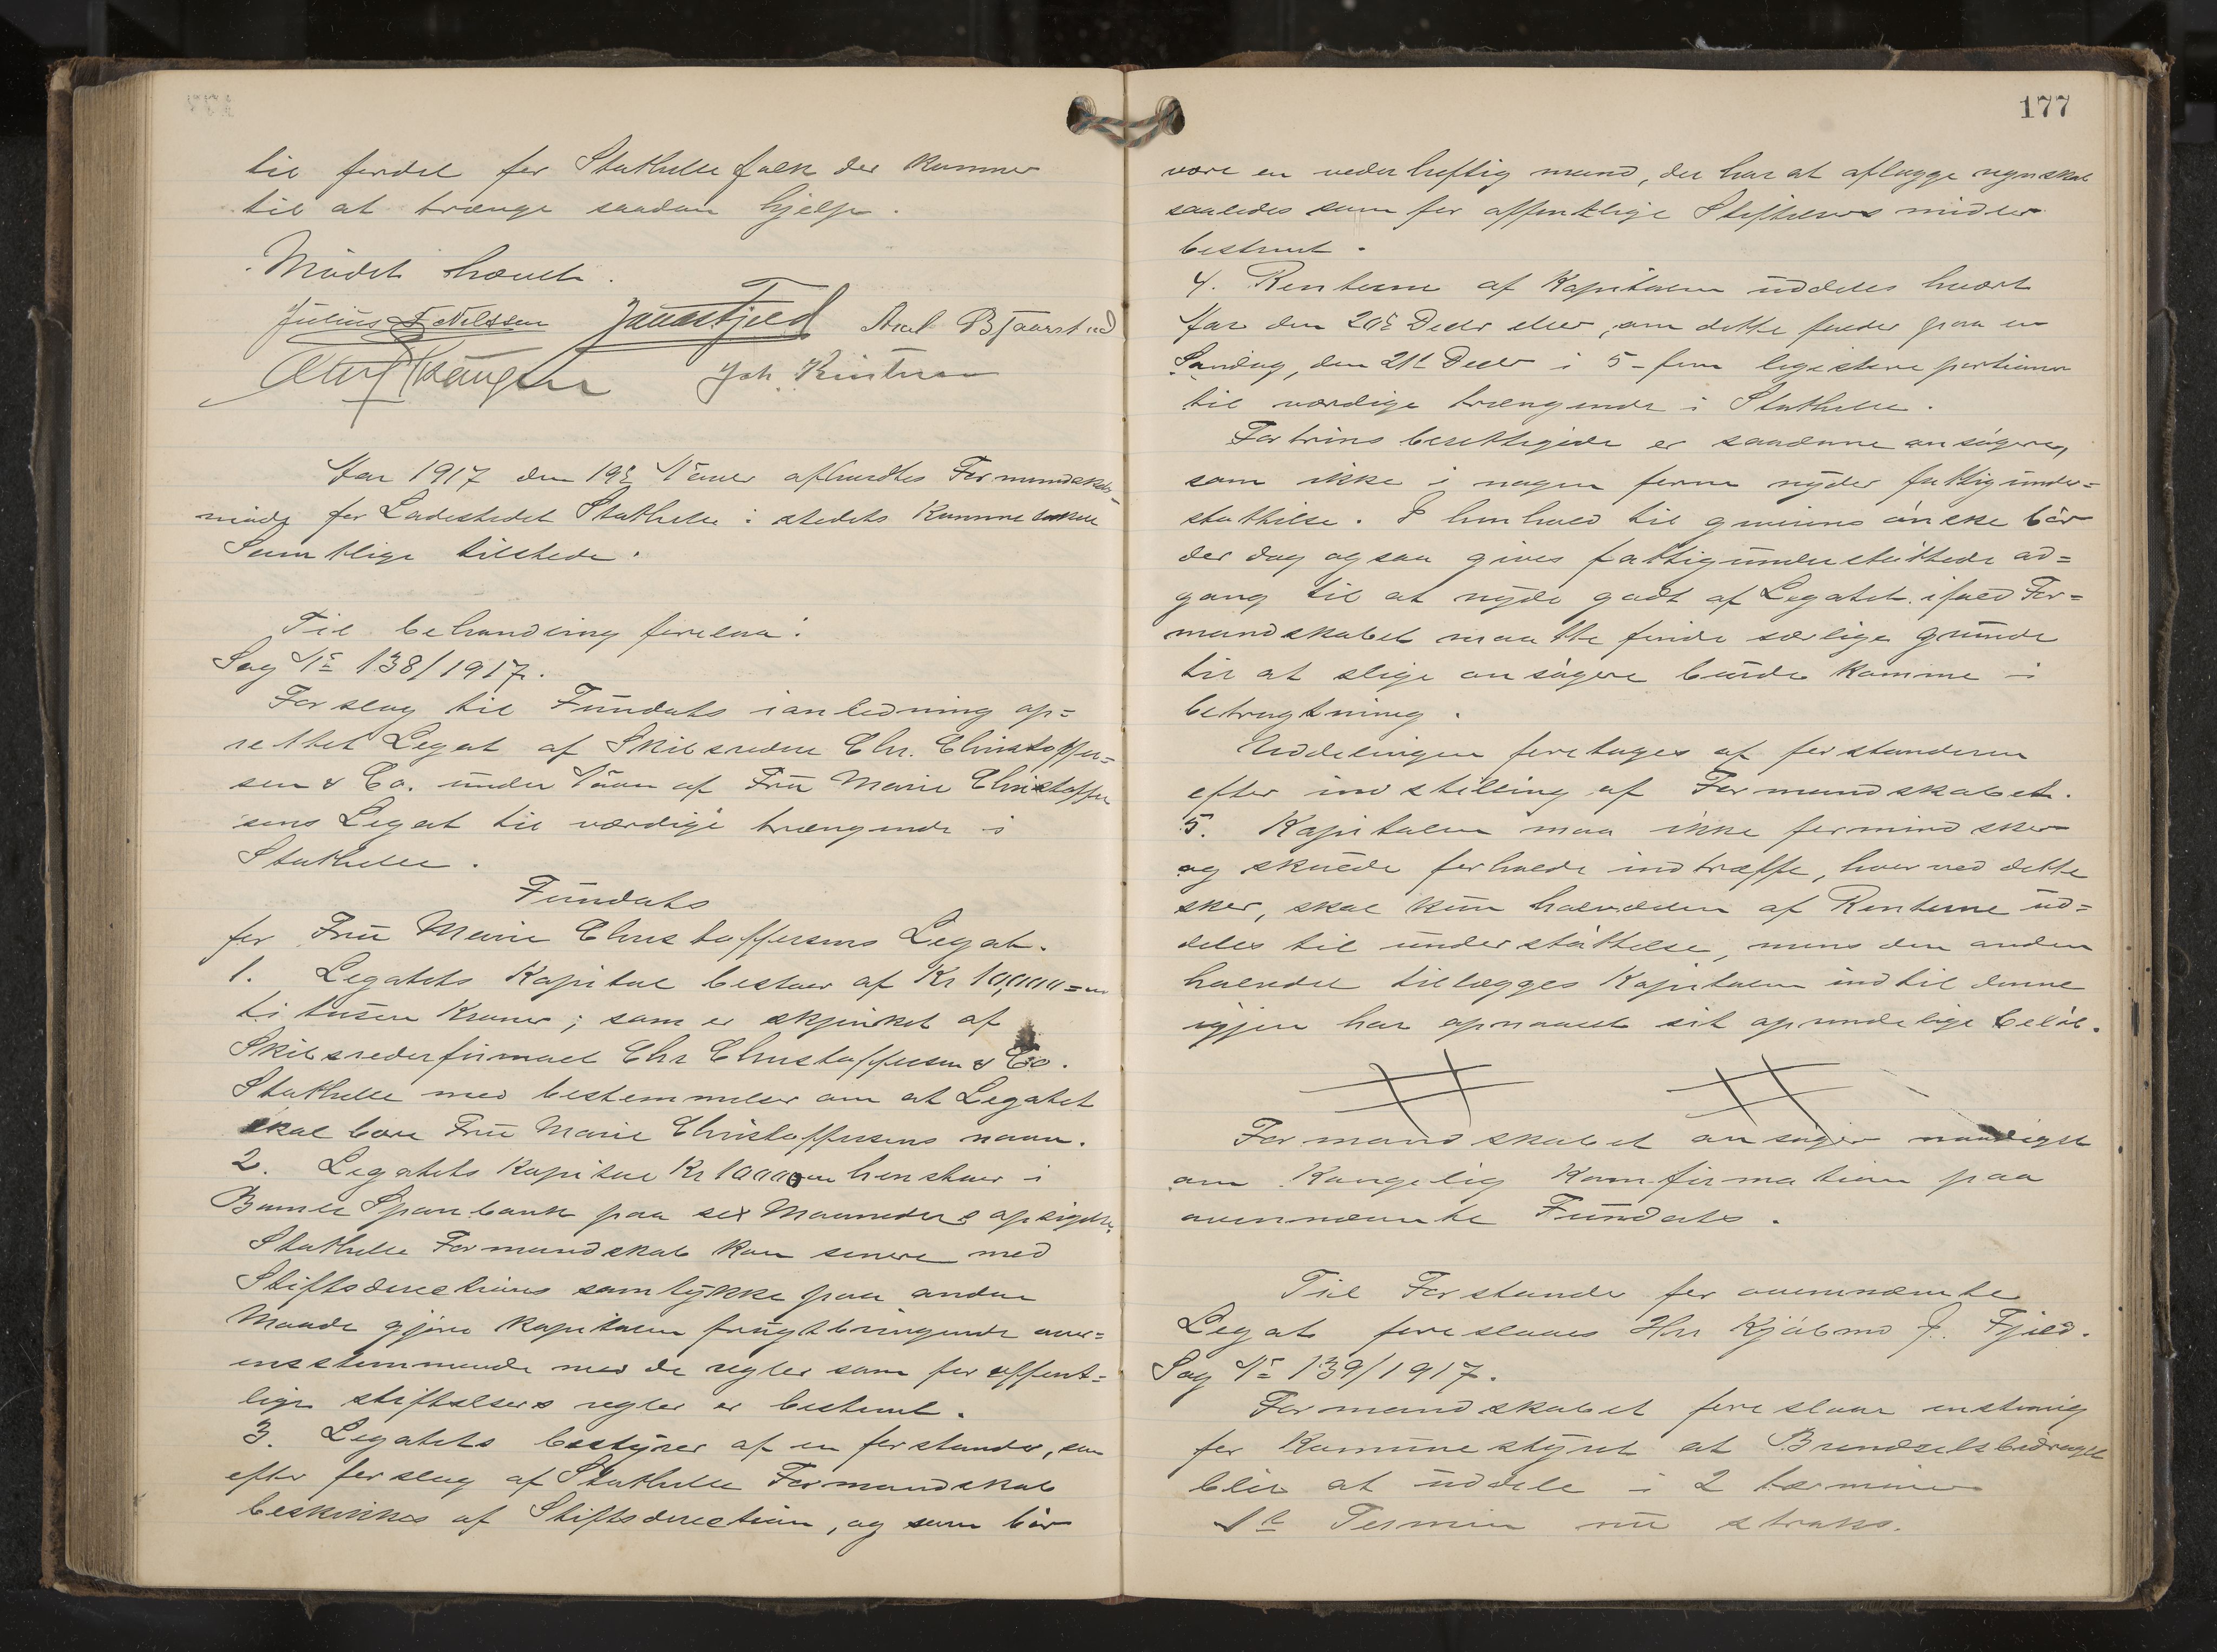 til fordel for Stathelle folk der kommer
til at trænge saadan hjelp.
Mødet hævet.
Julius F. Nilssen Janus Fjeld Axel Bjaarstad
Joh.
Aar 1917 den 19de Novbr afholdtes Formandskabs-
møde for Ladestedet Stathelle i stedets Kommunelokale
Samtlige tilstede.
Til behandling forelaa:
Sag No 138/1917.
Forslag til Fundats i anledning op=
rettet Legat af Skibsredere Chr. Christoffer=
sen & Co. under Navn af Fru Marie Christoffer
sens Legat til værdige trængende i
Stathelle.
Fundats
for Fru Marie Christoffersens Legat.
1. Legatets Kapital bestaar af Kr 10,000=
ti tusen Kroner; som er skjenket af
Skibsrederfirmaet Chr Christoffersen & Co.
Stathelle med bestemmelser om at Legatet
skal bære Fru Marie Christoffersens navn.
2. Legatets Kapital Kr 10000 henstaar i
Bamle Sparebank paa sex Maaneders opsigelse.
Stathelle Formandskab kan senere med
Stiftsdirectionens samtykke paa anden
Maade gjøre Kapitalen frugtbringende over=
ensstemmende med de regler som for offent=
lige stiftelsers regler er bestemt.
3. Legatets bestyres af en forstander, som
efter forslag af Stathelle Formandskab
beskikkes af Stiftsdirection, og som bør
177
være en vederheftig mand, der har at aflægge regnskab
saaledes som for offentlige Stiftelsers midler
bestemt.
4. Renterne af Kapitalen uddeles hvert
Aar den 20de Decbr eller, om dette falder paa en
Søndag, den 21de Decbr i 5 - fem ligestore portioner
til værdige trængende i Stathelle.
Fortrinsberettigede er saadanne ansøgere,
som ikke i nogen form nyder fattigunder=
støttelse. I henhold til giverens ønske bør
der dog ogsaa gives fattigunderstøttede ad=
gang til at nyde godt af Legatet ifald For=
mandskabet maatte finde særlige grunde
til at slige ansøgere burde komme i
betragtning.
Uddelingen foretages af forstanderen
efter indstilling af Formandskabet.
5. Kapitalen maa ikke formindskes
og skulde forholde indtræffe, hvorved dette
sker, skal kun halvdelen af Renterne ud=
deles til understøttelse, mens den anden
halvdel tillægges Kapitalen indtil denne
igjen har opnaaet sit oprindelige beløb.
Formandskabet ansøger naadigst
om Kongelig Konfirmation paa
ovennævnte Fundats.
Til Forstander for ovennævnte
Legat foreslaaes Hrr Kjøbmd J. Fjeld.
Sag No 139/1917.
Formandskabet foreslaar enstemig
for Kommunestyret at Brendselsbidraget
blir at uddele i 2 terminer
1ste Termin nu straks.